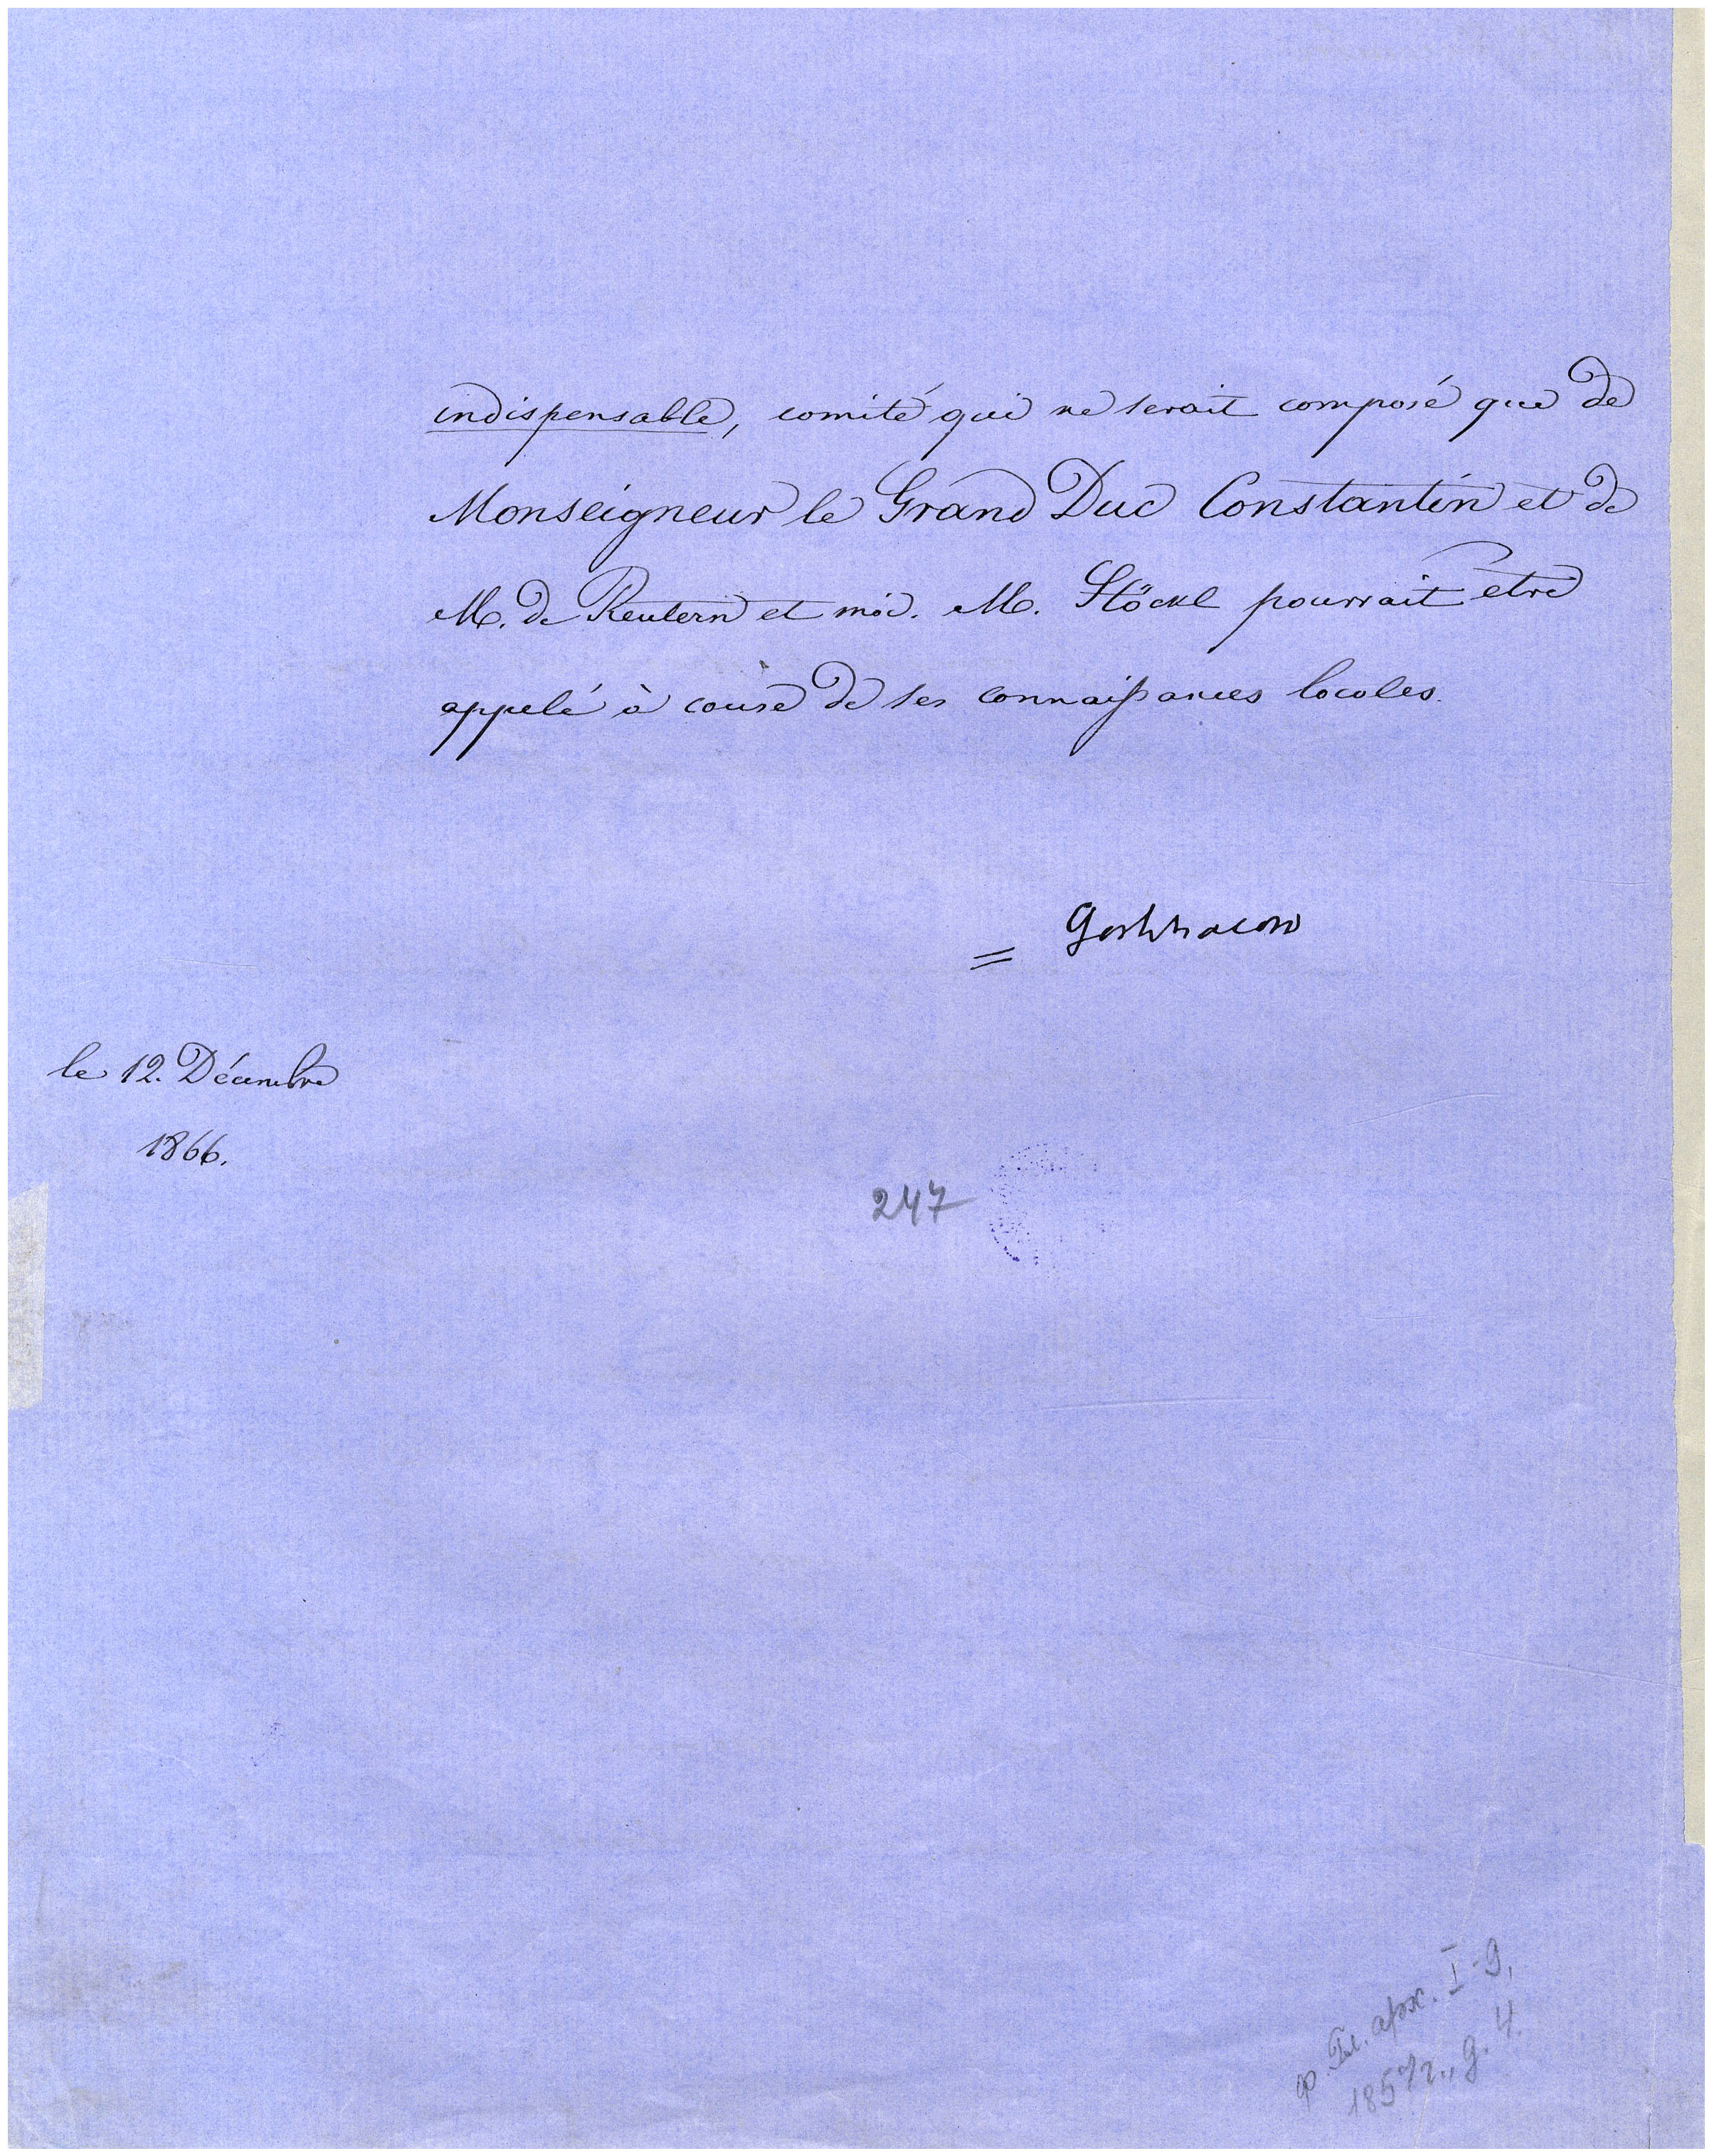 indispensable, comité qui ne serait composé que de
Monseigneur le Grand Duc Constantin et de
M. de Reutern et moi. M. Stöckl pourrait être
appelé à cause de ses connaissances locales.
Gortchacow
le 12. Décembre
1866.
247
ф. Гл. арх. I-9,
1857 г., д. 4.